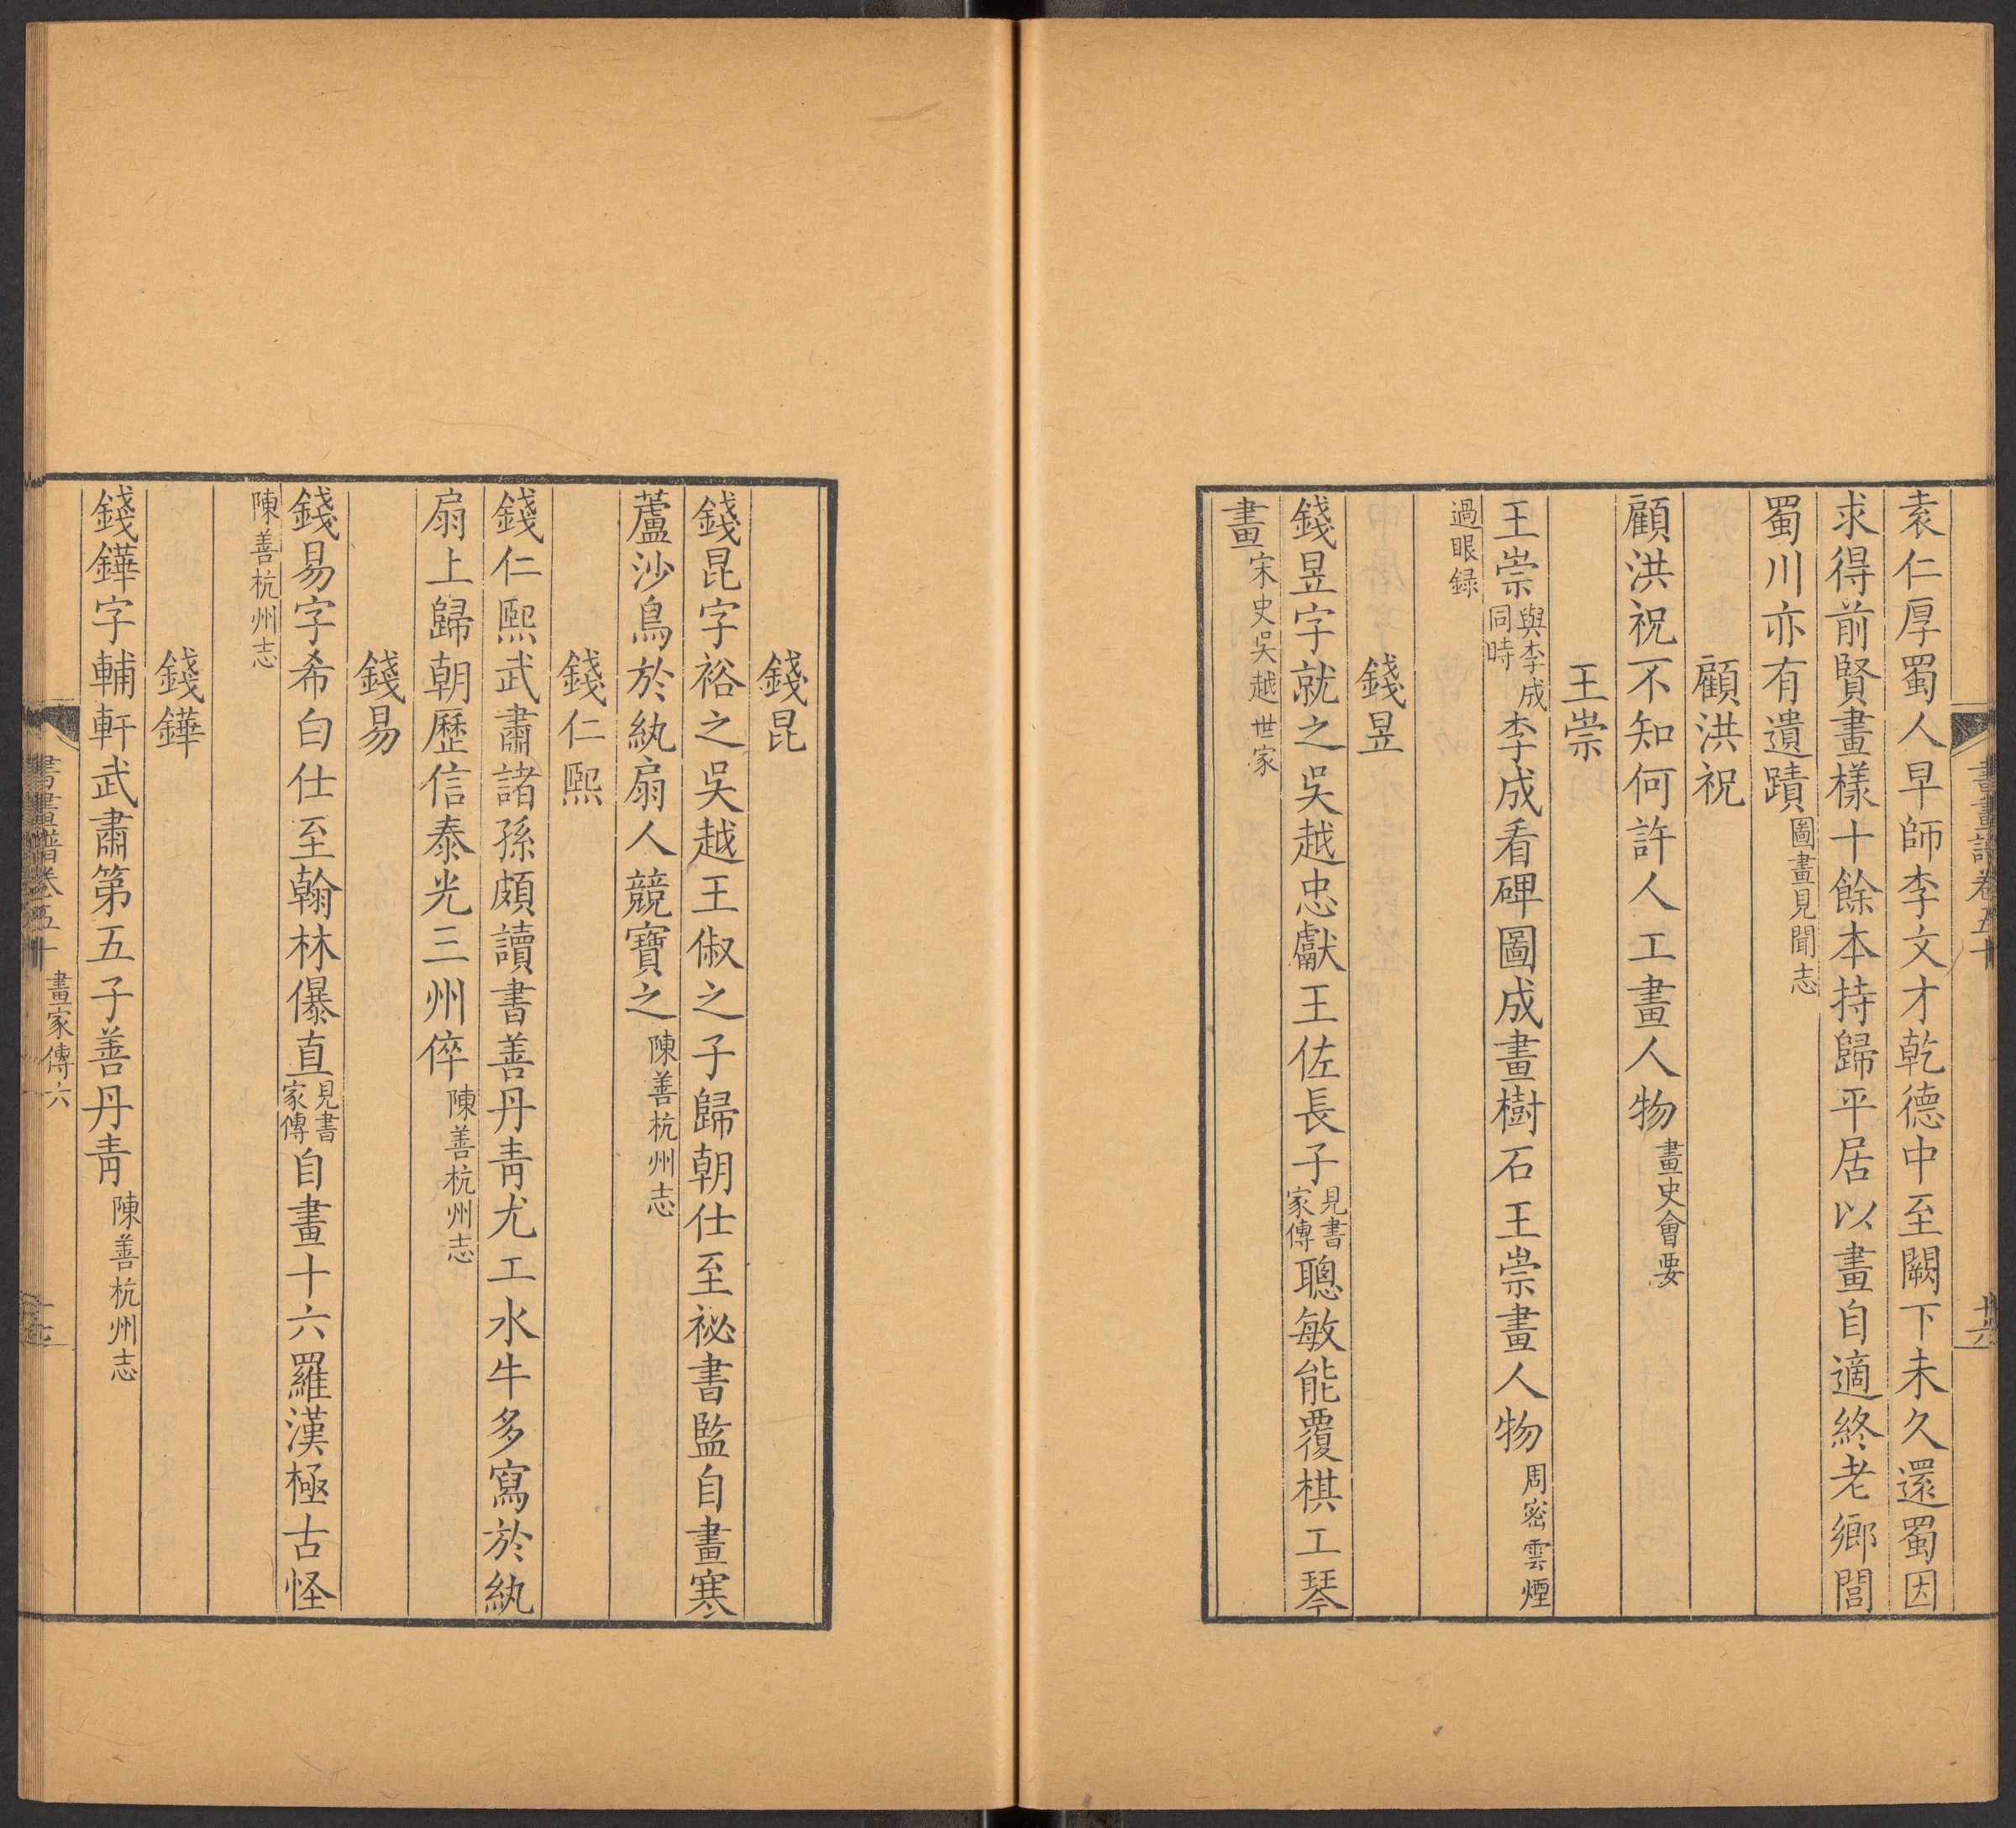 書畫譜卷五十
十六
袁仁厚蜀人早師李文才乾德中至闕下未久還蜀因
求得前賢畫樣十餘本持歸平居以畫自適終老鄉閭
蜀川亦有遺蹟圖畫見聞志
顧洪祝
顧洪祝不知何許人工畫人物畫史會要
王崇
王崇與李成同時李成看碑圖成畫樹石王崇畫人物周密雲煙
過眼録
錢昱
錢昱字就之吳越忠獻王佐長子見書家傳聰敏能覆棋工琴
畫宋史吳越世家
錢昆
錢昆字裕之吳越王俶之子歸朝仕至祕書監自畫寒
蘆沙鳥於紈扇人競寶之陳善杭州志
錢仁熙
錢仁熙武肅諸孫頗讀書善丹青尤工水牛多寫於紈
扇上歸朝歷信泰光三州倅陳善杭州志
錢易
錢易字希白仕至翰林儤直見書家傳自畫十六羅漢極古怪
陳善杭州志
錢鏵
錢鏵字輔軒武肅第五子善丹青陳善杭州志
書畫譜卷五十
畫家傳六